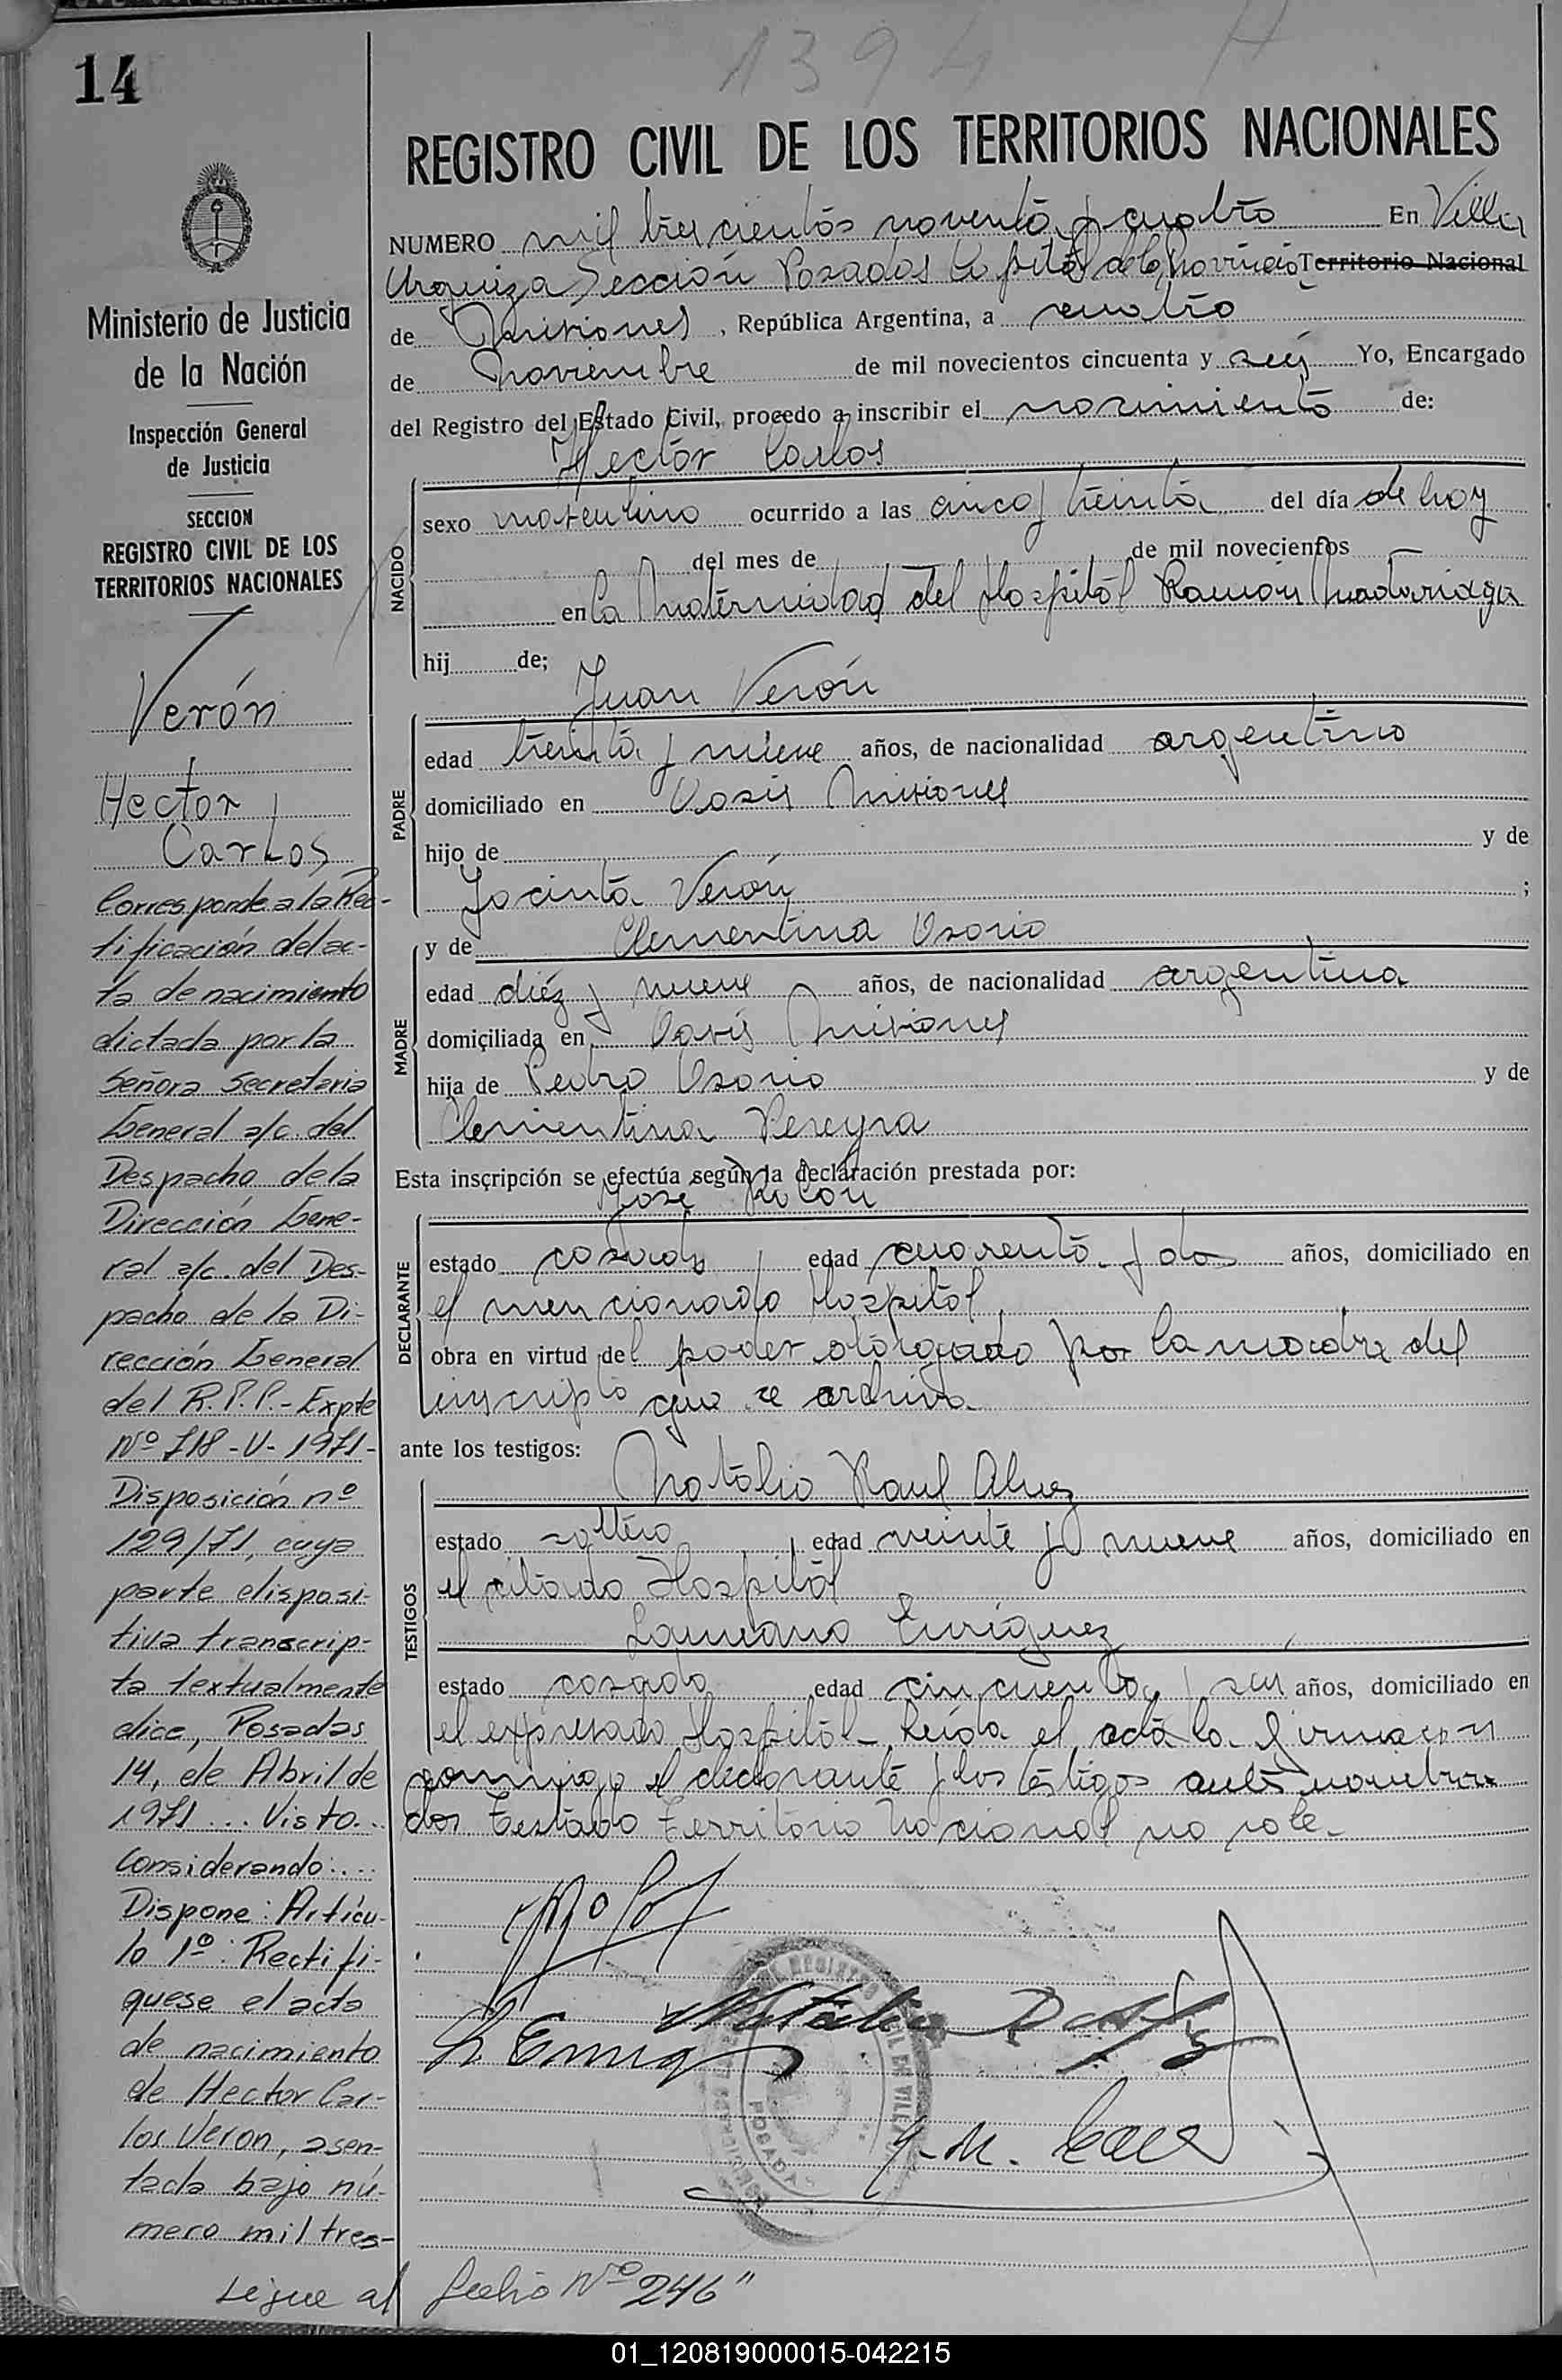 14
1394
REGISTRO CIVIL DE LOS TERRITORIOS NACIONALES
NUMERO mil trescientos noventa y cuatro En Villa
Urquiza Sección Posadas Capital de la Provincia Territorio Nacional
de Misiones, República Argentina, a cuatro
de Noviembre de mil novecientos cincuenta y seis Yo, Encargado
del Registro del Estado Civil, procedo a inscribir el nacimiento de:
Hector Carlos
NACIDO
sexo masculino ocurrido a las cinco y treinta del día de hoy
del mes de de mil novecientos
en la Maternidad del Hospital Ramón Madariaga
hij de;
Juan Verón
PADRE
edad treinta y nueve años, de nacionalidad argentino
domiciliado en Misiones
hijo de y de
Jacinta Verón ;
MADRE
y de Clementina Osorio
edad diéz y nueve años, de nacionalidad argentina
domiciliada en Misiones
hija de Pedro Osorio y de
Clementina Pereyra
Esta inscripción se efectúa según la declaración prestada por:
José Rolón
DECLARANTE
estado casado edad cuarenta y dos años, domiciliado en
el mencionado Hospital
obra en virtud del poder otorgado por la madre del
inscripto que se archiva.
ante los testigos:
Natalio Raul Alvez
TESTIGOS
estado soltero edad veinte y nueve años, domiciliado en
el citado Hospital
Laureano Enriquez
estado casado edad cincuenta y seis años, domiciliado en
el expresado Hospital. Leída el acta la firmaron
conmigo el declarante y los testigos antes nombra
dos Testado Territorio Nacional no vale.
Ministerio de Justicia
de la Nación
Inspección General
de Justicia
SECCION
REGISTRO CIVIL DE LOS
TERRITORIOS NACIONALES
Verón
Hector
Carlos
Corresponde a la Rec-
tificación del ac-
ta de nacimiento
dictada por la
Señora Secretaria
General a/c. del
Despacho de la
Dirección Gene-
ral a/c. del Des-
pacho de la Di-
rección General
del R.P.P.- Expte
Nº 718-V-1971-
Disposición nº
129/71, cuya
parte disposi-
tiva transcrip-
ta textualmente
dice, Posadas
14, de Abril de
1971... Visto...
Considerando:...
Dispone: Artícu-
lo 1º: Rectifi-
quese el acta
de nacimiento
de Hector Car-
los Veron, asen-
tada bajo nú-
mero mil tres-
Sigue al folio Nº 246"
01_120819000015-042215